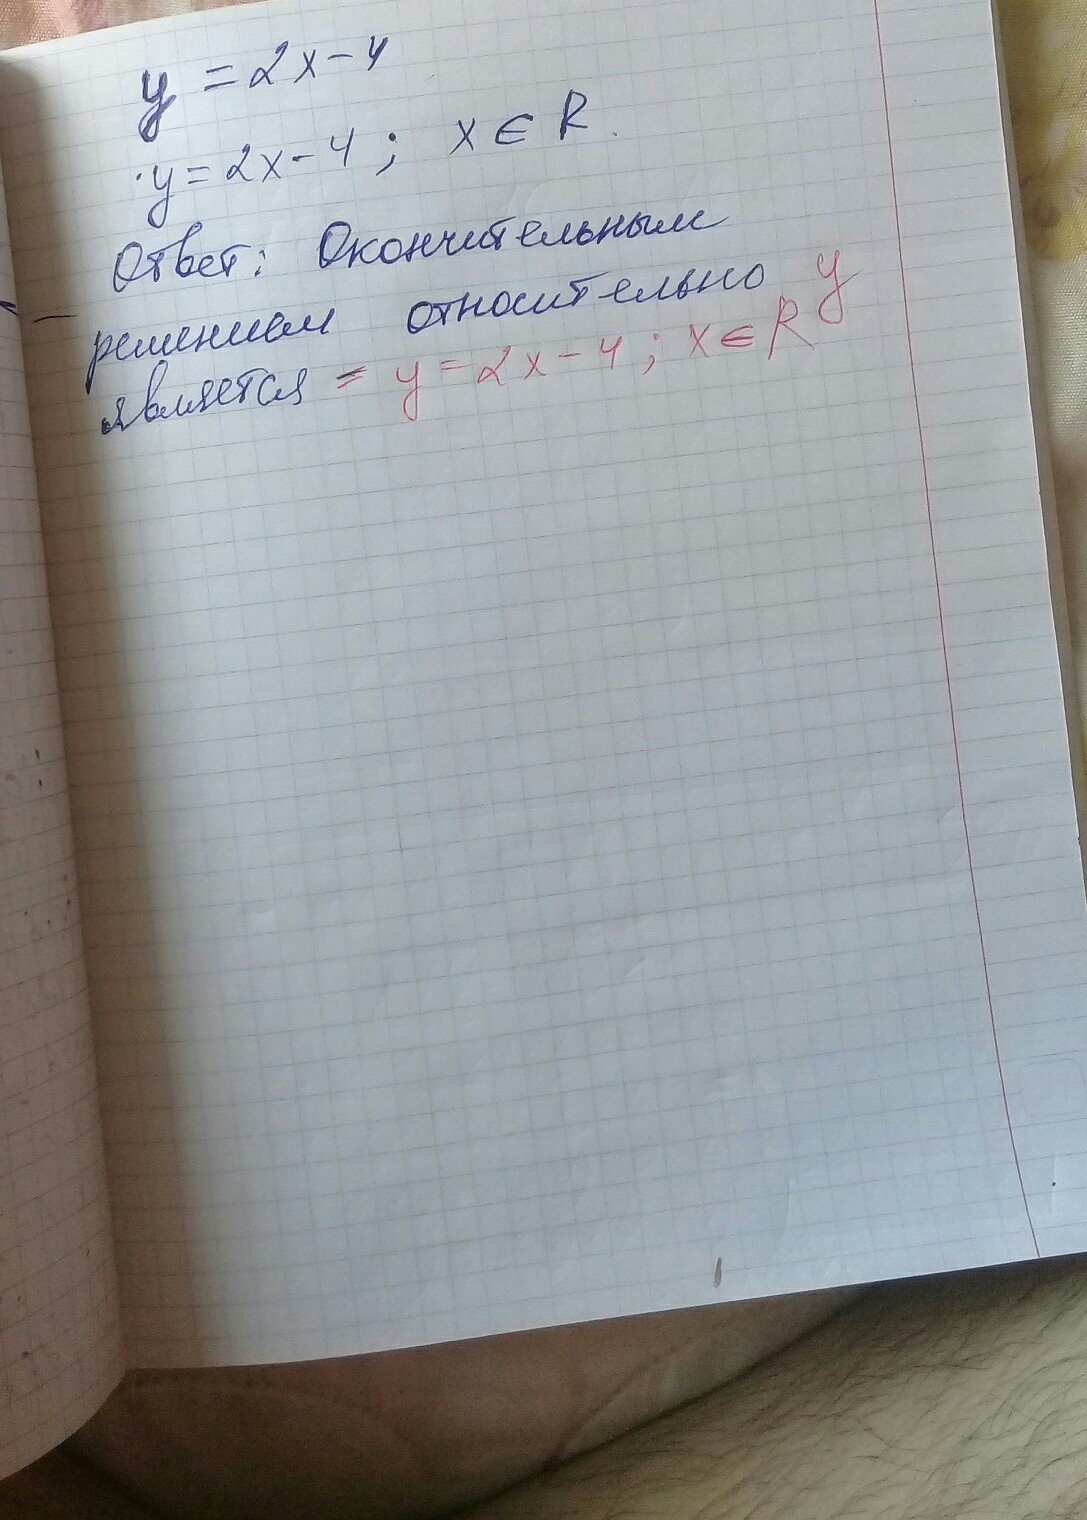 y = 2x - 4
y = 2x - 4 ; x ∈ R.
Ответ: Окончительным
решением относительно y
является = y = 2x - 4 ; x ∈ R